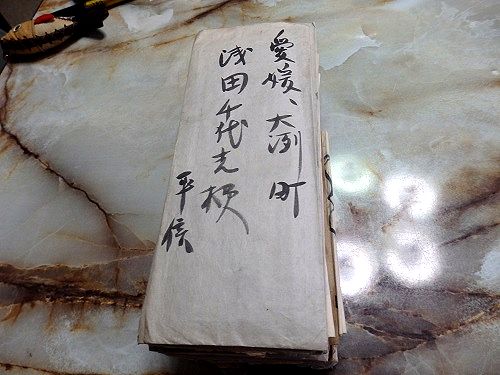 愛媛、大洲町
浅田千代吉様
平信